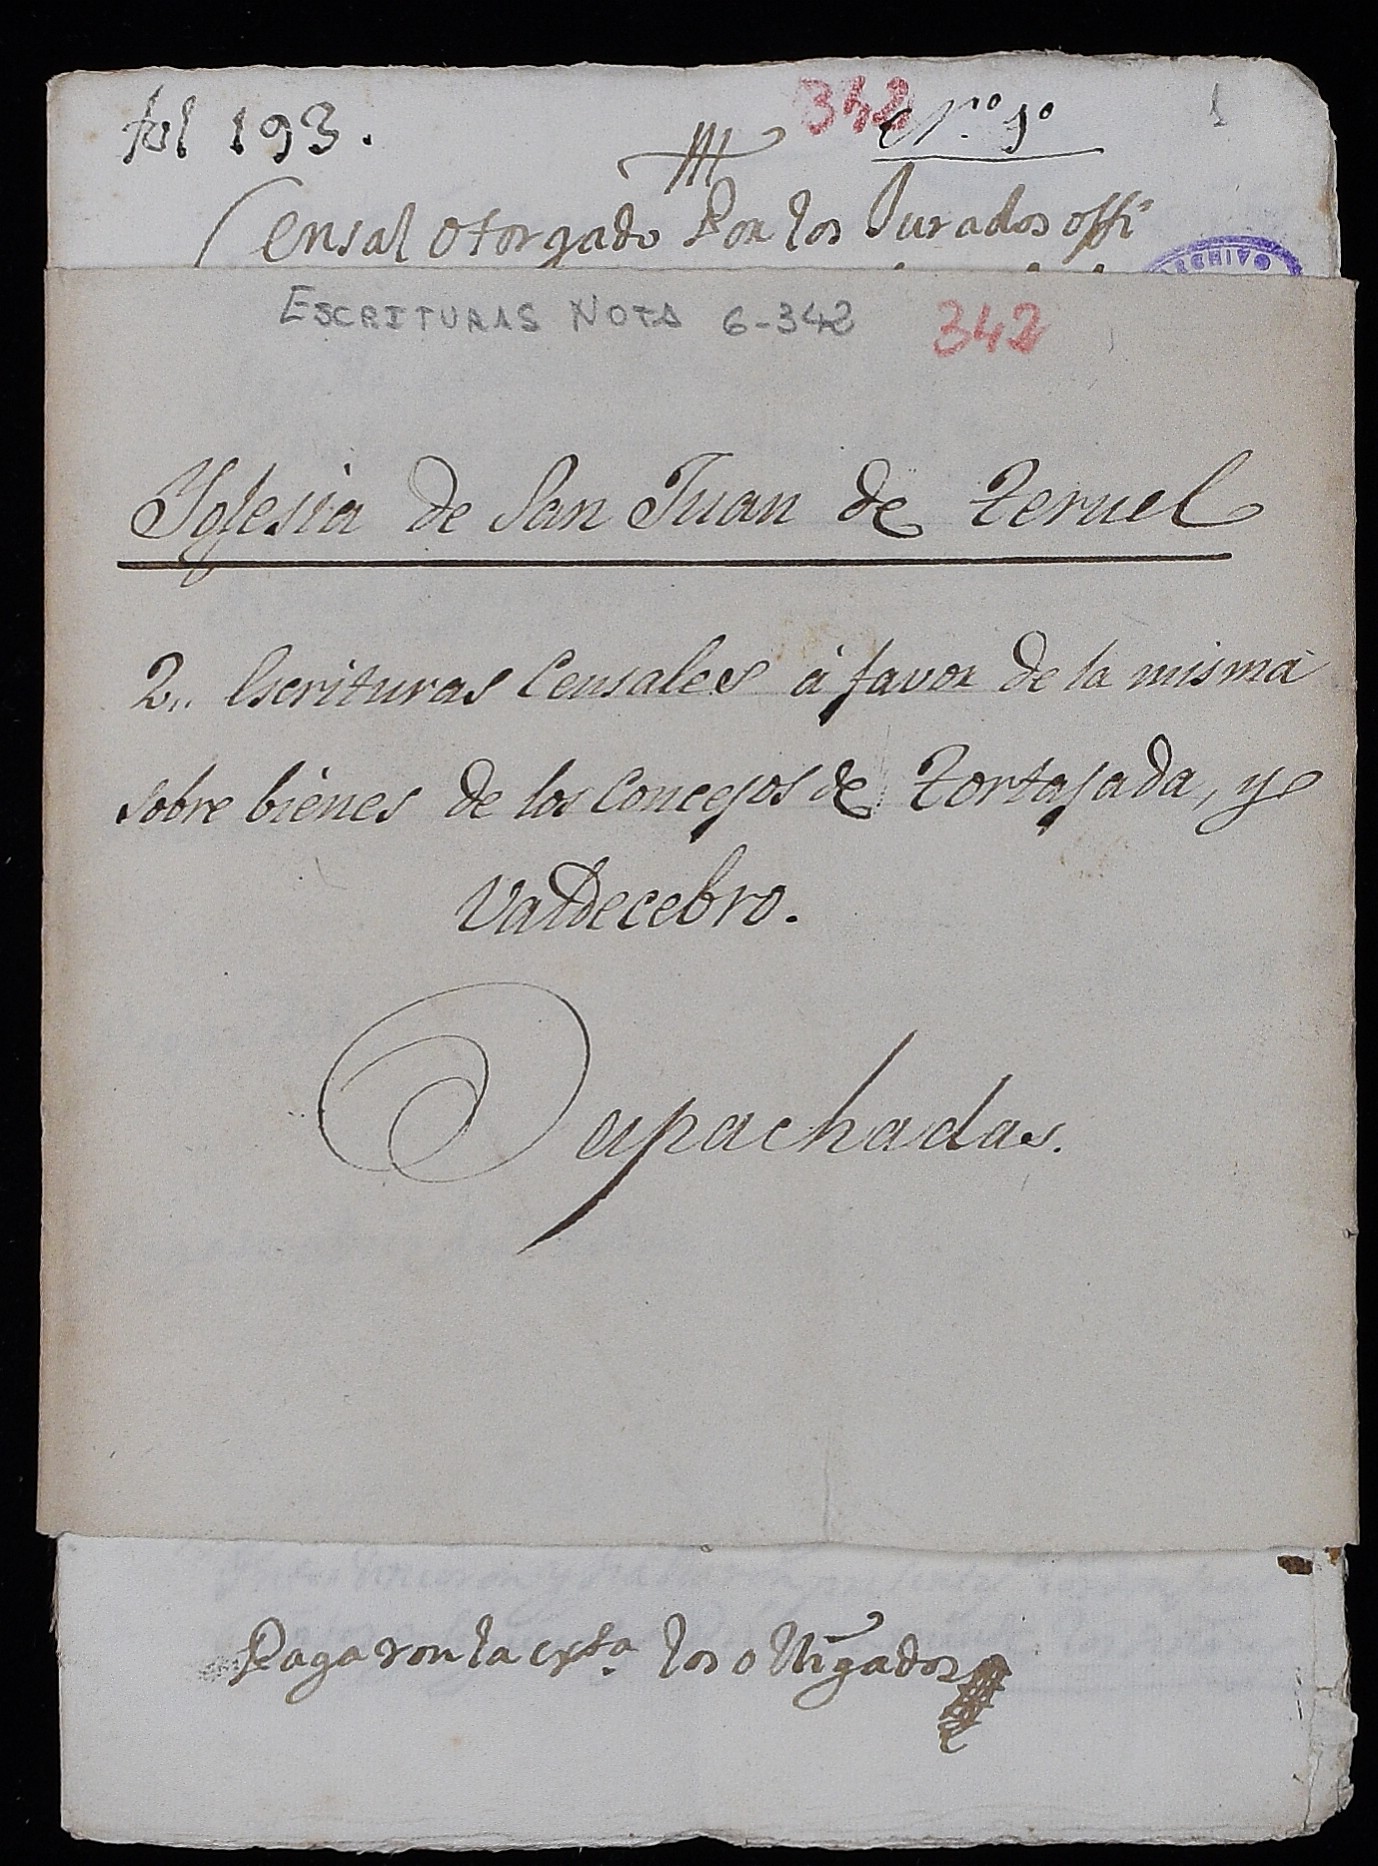 fol 193.
342
N.º 1º
1
Censal otorgado Por los Jurados offi
ARCHIVO
ESCRITURAS NOTS 6-342
342
Yglesia de San Juan de Teruel
2,, Escrituras Censales á favor de la misma
sobre bienes de los Concejos de Tortajada, y
Valdecebro.
Despachadas.
Pagaron la exta. los obligados